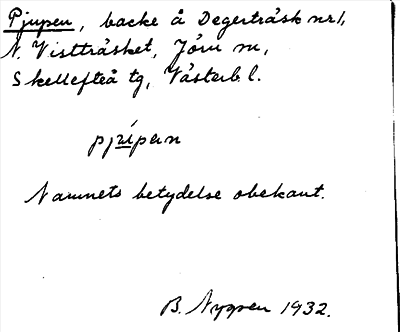 Pjupen, backe å Degerträsk nr 1,
N. Vistträsket, Jörn sn,
Skellefteå tg, Västerb. l.
Namnets betydelse obekant.
B. Nygren 1932.